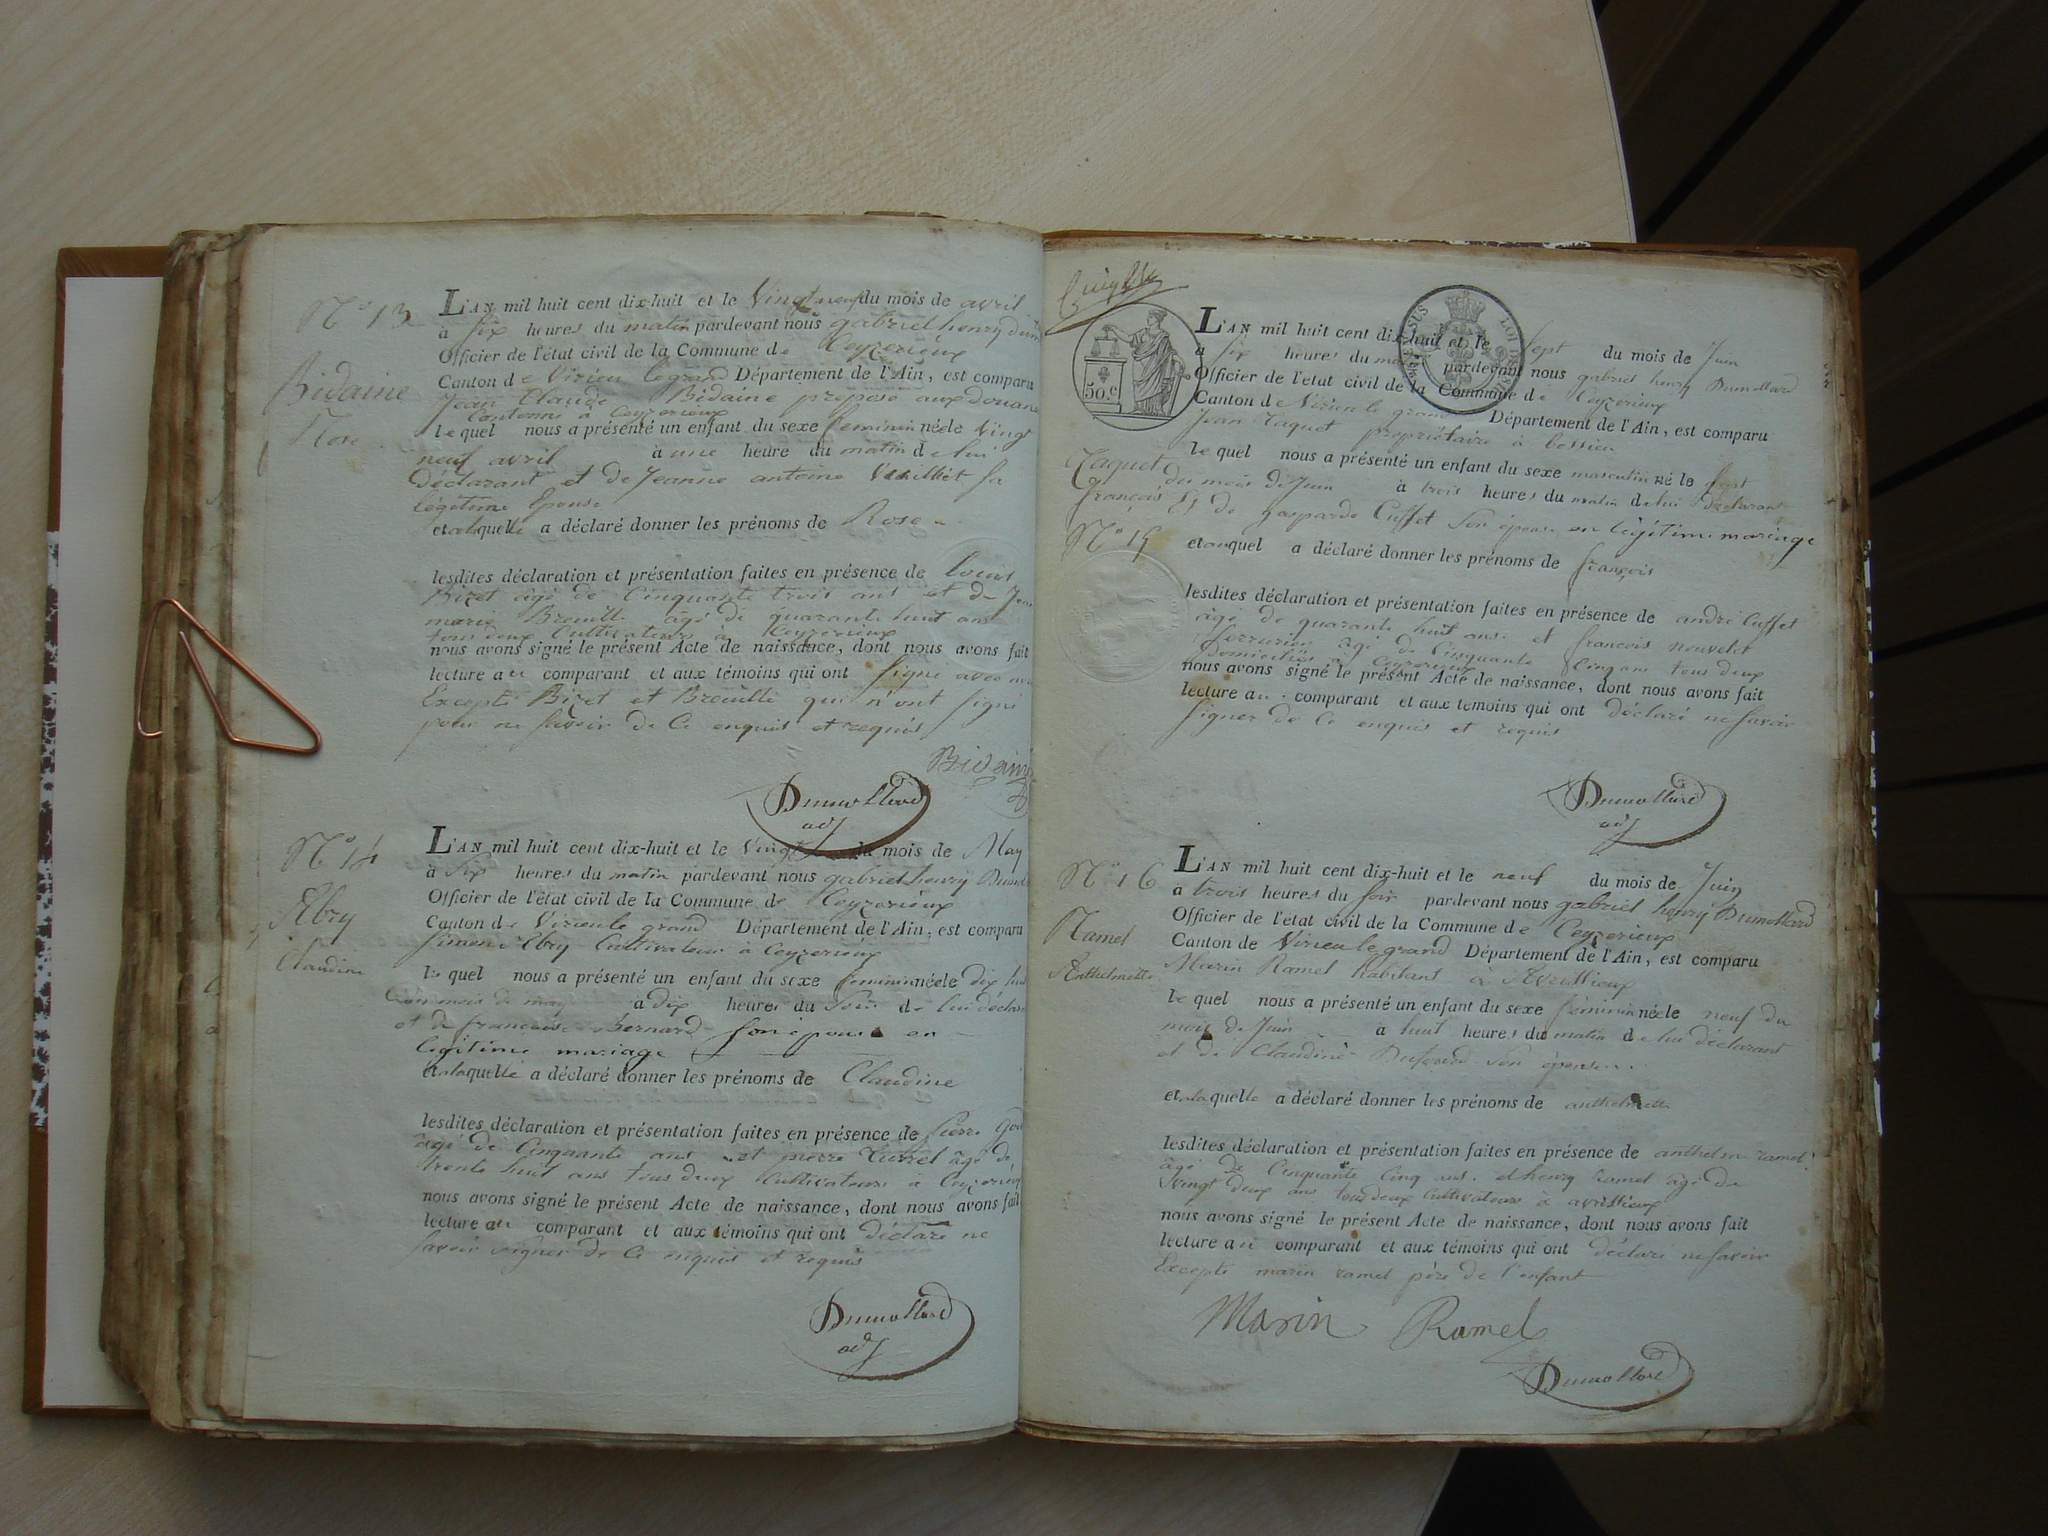 N° 13
Bidaine
Rose
L'AN mil huit cent dix-huit et le Vingt neuf du mois de avril
à six heures du matin pardevant nous gabriel henry
Officier de l'état civil de la Commune de Ceyzerieux
Canton de Virieu le grand Département de l'Ain, est comparu
Jean Claude Bidaine préposé aux douane
Cantonné à Ceyzerieux
lequel nous a présenté un enfant du sexe feminin née le vingt
neuf avril à une heure du matin de lui
déclarant et de Jeanne antoine Vuillet sa
légitime Epouse
et à laquelle a déclaré donner les prénoms de Rose
lesdites déclaration et présentation faites en présence de louis
Bizet âgé de Cinquante trois ans et de
marie Breuille âgé de quarante huit ans
tous deux Cultivateurs à Ceyzerieux
nous avons signé le présent Acte de naissance, dont nous avons fait
lecture au comparant et aux témoins qui ont signé avec
Excepté Bizet et Breuille qui n'ont signé
pour ne savoir de Ce enquis et requis
Bidaine
Dumollard
adj
N° 14
Abry
Claudine
L'AN mil huit cent dix-huit et le Vingt du mois de May
à six heures du matin pardevant nous gabriel henry
Officier de l'état civil de la Commune de Ceyzerieux
Canton de Virieu le grand Département de l'Ain, est comparu
Simon Abry Cultivateur à Ceyzerieux
lequel nous a présenté un enfant du sexe feminin née le dix
mois de may à dix heures du soir de lui
et de francoise Bernard son épouse en
légitime mariage
et à laquelle a déclaré donner les prénoms de Claudine
lesdites déclaration et présentation faites en présence de pierre
âgé de Cinquante ans et pierre âgé de
trente huit ans tous deux Cultivateurs à Ceyzerieux
nous avons signé le présent Acte de naissance, dont nous avons fait
lecture au comparant et aux témoins qui ont déclaré ne
savoir signer de Ce enquis et requis
Dumollard
adj
50.c
LOI DE
L'AN mil huit cent dix-huit et le sept du mois de Juin
à six heures du pardevant nous gabriel henry Dumollard
Officier de l'état civil de la Commune de Ceyzerieux
Canton de Virieu le grand Département de l'Ain, est comparu
Jean Taquet propriétaire à
Taquet
François
N° 15
lequel nous a présenté un enfant du sexe masculin né le sept
du mois de Juin à trois heures du matin de lui déclarant
Et de gasparde Cuffet son épouse en légitime mariage
et auquel a déclaré donner les prénoms de françois
lesdites déclaration et présentation faites en présence de andré Cuffet
âgé de quarante huit ans et françois
âgé de Cinquante Cinq ans tous deux
Domiciliés à Ceyzerieux
nous avons signé le présent Acte de naissance, dont nous avons fait
lecture au comparant et aux témoins qui ont déclaré ne savoir
signer de Ce enquis et requis
Dumollard
adj
N° 16
Ramel
Anthelmette
L'AN mil huit cent dix-huit et le neuf du mois de Juin
à trois heures du soir pardevant nous gabriel henry Dumollard
Officier de l'état civil de la Commune de Ceyzerieux
Canton de Virieu le grand Département de l'Ain, est comparu
Marin Ramel habitant à Avrissieux
lequel nous a présenté un enfant du sexe féminin née le neuf du
mois de Juin à huit heures du matin de lui déclarant
et de Claudine son épouse
et à laquelle a déclaré donner les prénoms de anthelmette
lesdites déclaration et présentation faites en présence de anthelme ramel
âgé de Cinquante Cinq ans et henry ramel âgé de
vingt deux ans tous deux Cultivateurs à avrissieux
nous avons signé le présent Acte de naissance, dont nous avons fait
lecture au comparant et aux témoins qui ont déclaré ne savoir
Excepté marin ramel père de l'enfant
Marin Ramel
Dumollard